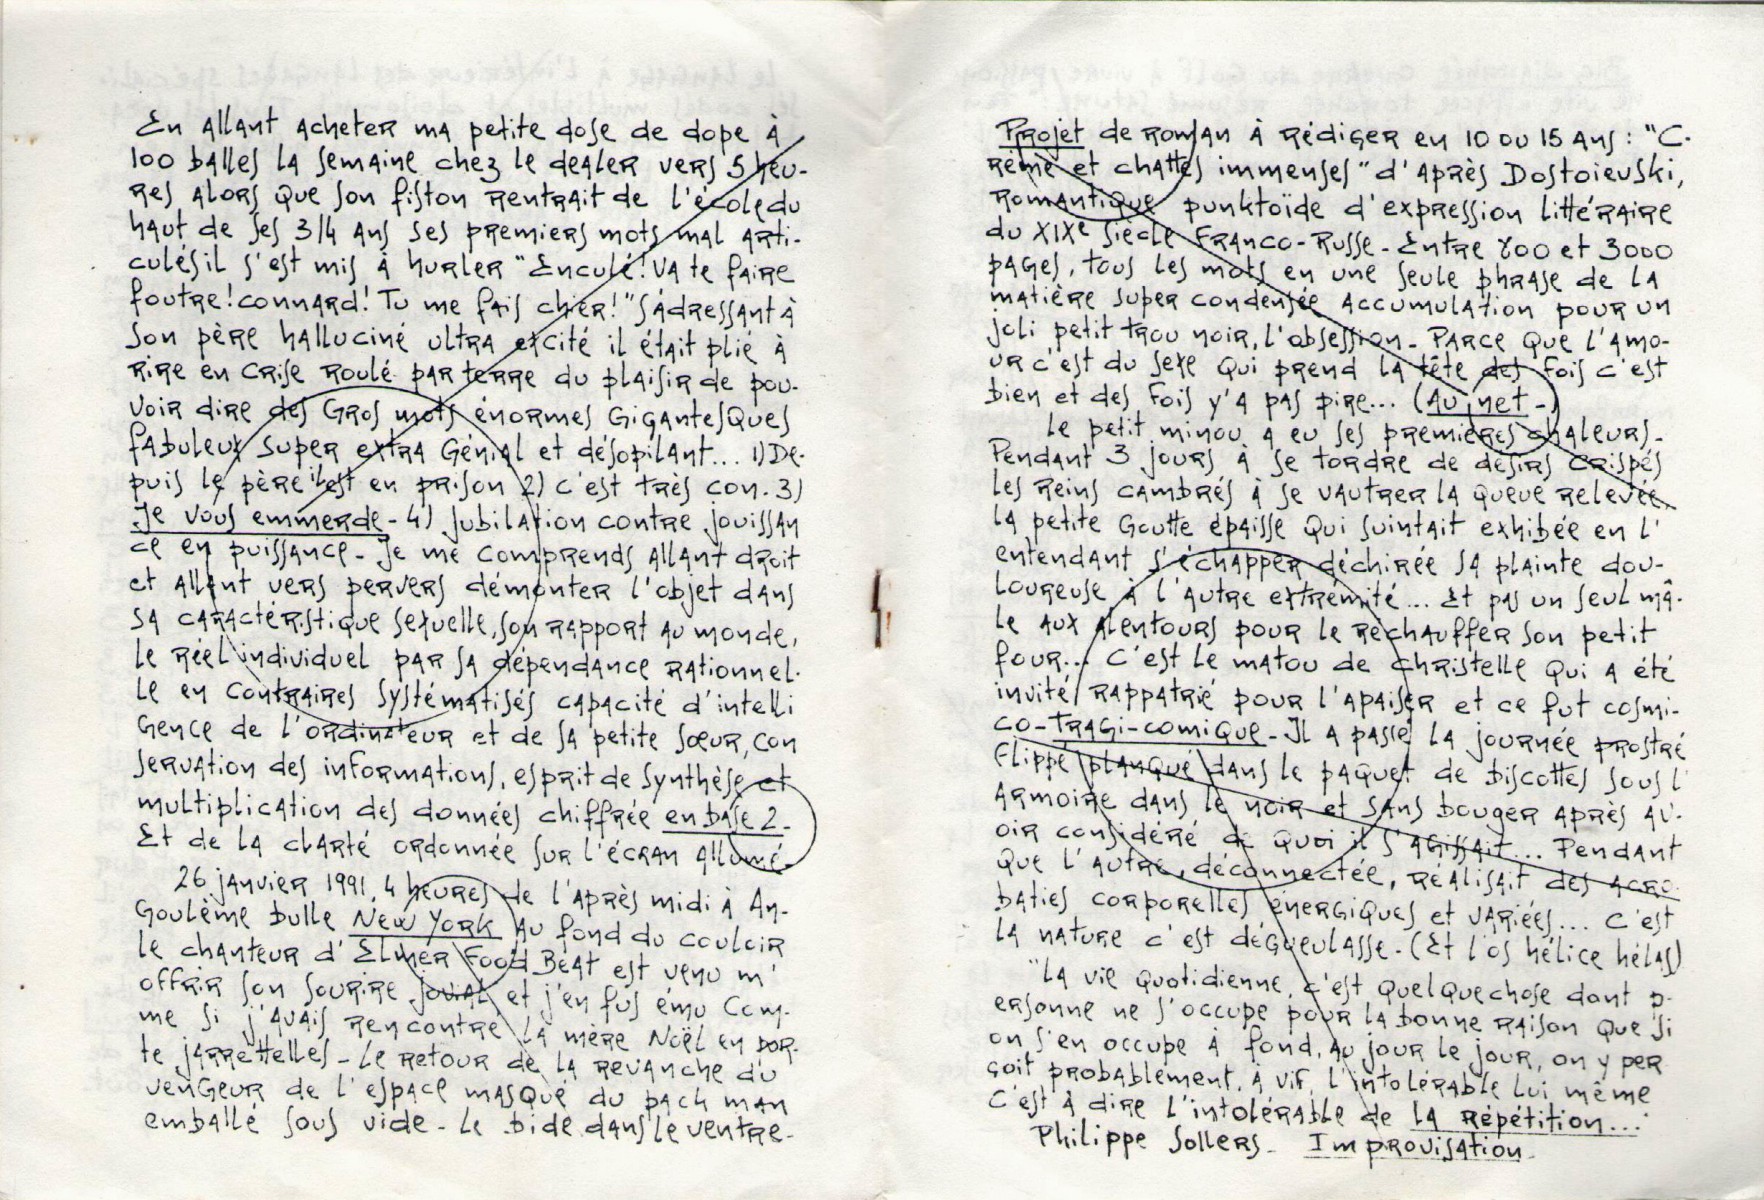 En allant acheter ma petite dose de dope à
100 balles la semaine chez le dealer vers 5 heu-
res alors que son fiston rentrait de l'école du
haut de ses 3/4 ans ses premiers mots mal arti-
culés il s'est mis à hurler "Enculé! Va te faire
foutre! connard! Tu me fais chier!" S'adressant à
son père halluciné ultra excité il était plié à
rire en crise roulé par terre du plaisir de pou-
voir dire des gros mots énormes gigantesques
fabuleux super extra génial et désopilant... 1) De-
puis le père il est en prison 2) c'est très con. 3)
Je vous emmerde - 4) Jubilation contre jouissan
ce en puissance - Je me comprends allant droit
et allant vers pervers démonter l'objet dans
sa caractéristique sexuelle, son rapport au monde,
le réel individuel par sa dépendance rationnel-
le en contraires systématisés capacité d'intelli
gence de l'ordinateur et de sa petite sœur, con
servation des informations, esprit de synthèse et
multiplication des données chiffrée en base 2 -
Et de la clarté ordonnée sur l'écran allumé -
26 janvier 1991, 4 heures de l'après midi à An-
goulème bulle New York au fond du couloir
le chanteur d'Elmer Food Beat est venu m'
offrir son sourire jovial et j'en fus ému com-
me si j'avais rencontré la mère Noël en por-
te jarrettelles - Le retour de la revanche du
vengeur de l'espace masqué du pack man
emballé sous vide - Le bide dans le ventre -
Projet de roman à rédiger en 10 ou 15 ans : "C-
rème et chattes immenses" d'après Dostoïevski,
romantique punktoïde d'expression littéraire
du XIXe siècle Franco-Russe - Entre 800 et 3000
pages, tous les mots en une seule phrase de la
matière super condensée accumulation pour un
joli petit trou noir, l'obsession - Parce que l'amo-
ur c'est du sexe qui prend la tête des fois c'est
bien et des fois y'a pas pire... (Au net -)
Le petit minou a eu ses premières chaleurs -
Pendant 3 jours à se tordre de désirs crispés
les reins cambrés à se vautrer la queue relevée
la petite goutte épaisse qui suintait exhibée en l'
entendant s'échapper déchirée sa plainte dou-
loureuse à l'autre extrémité... Et pas un seul mâ-
le aux alentours pour le réchauffer son petit
four... C'est le matou de Christelle qui a été
invité rappatrié pour l'apaiser et ce fut cosmi-
co-tragi-comique - Il a passé la journée prostré
flippé planqué dans le paquet de biscottes sous l'
armoire dans le noir et sans bouger après av-
oir considéré de quoi il s'agissait... Pendant
que l'autre, déconnectée, réalisait des acro-
baties corporelles énergiques et variées... C'est
la nature c'est dégueulasse - (Et l'os hélice hélas)
"La vie quotidienne, c'est quelque chose dont p-
ersonne ne s'occupe pour la bonne raison que si
on s'en occupe à fond, au jour le jour, on y per
çoit probablement, à vif, l'intolérable lui même
c'est à dire l'intolérable de la répétition..."
Philippe Sollers - Improvisation -